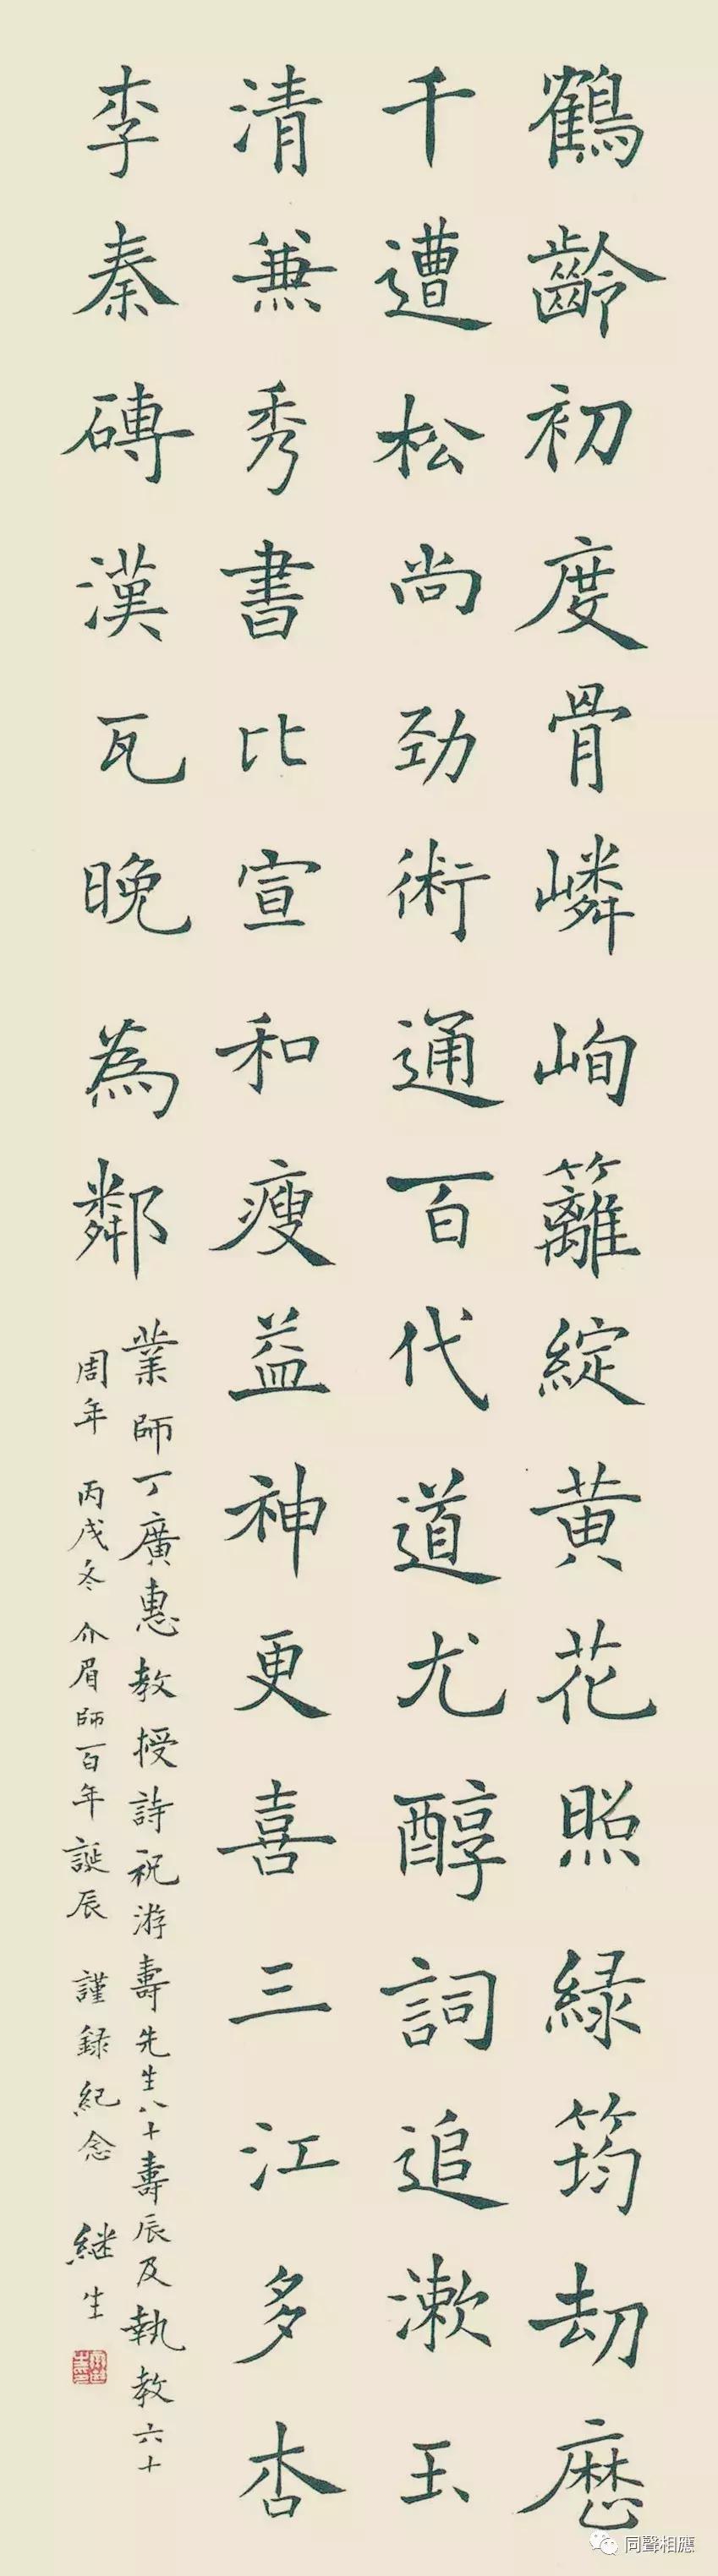 鶴齡初度骨嶙峋籬綻黄花照緑筠劫歷
千遭松尚勁術通百代道尤醇詞追漱玉
清兼秀書比宣和瘦益神更喜三江多杏
李秦磚漢瓦晚為鄰
業師丁廣惠教授詩祝游壽先生八十壽辰及執教六十
周年 丙戌冬 介眉師百年誕辰 謹録紀念 継生
同聲相應